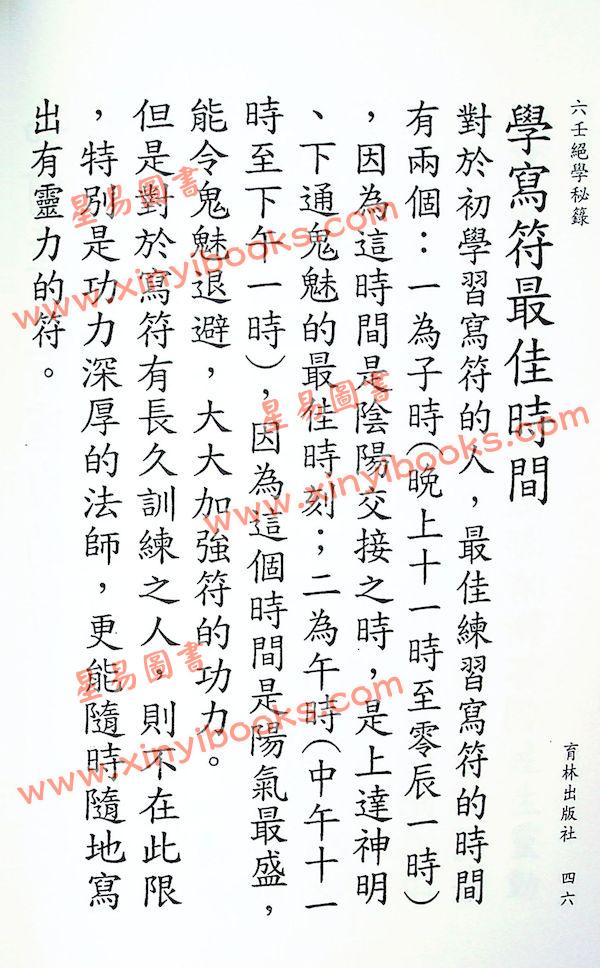 六壬絕學秘籙
學寫符最佳時間
對於初學習寫符的人，最佳練習寫符的時間
有兩個：一為子時（晚上十一時至零辰一時）
，因為這時間是陰陽交接之時，是上達神明
、下通鬼魅的最佳時刻；二為午時（中午十一
時至下午一時），因為這個時間是陽氣最盛，
能令鬼魅退避，大大加強符的功力。
但是對於寫符有長久訓練之人，則不在此限
，特別是功力深厚的法師，更能隨時隨地寫
出有靈力的符。
育林出版社 四六
星易圖書
www.xinyibooks.com
星易圖書
www.xinyibooks.com
星易圖書
www.xinyibooks.com